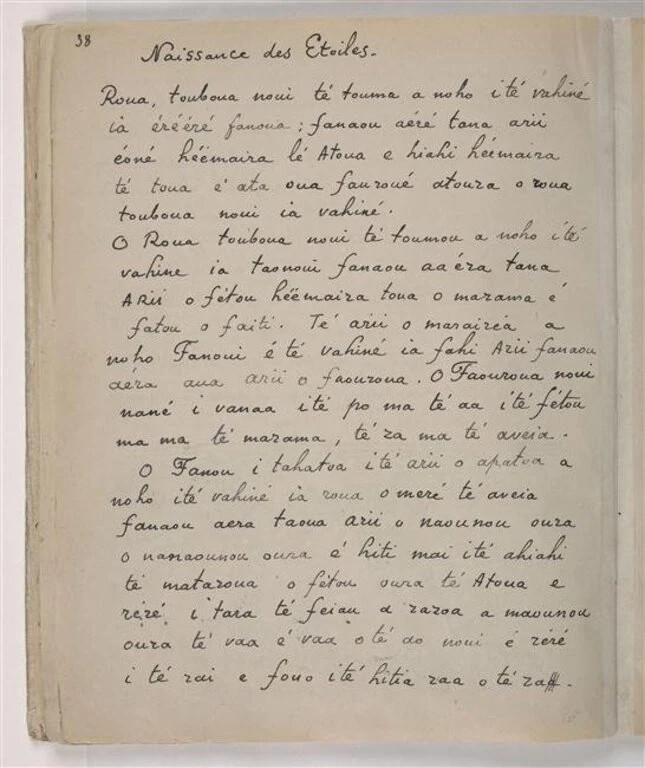 38
Naissance des Etoiles.
Roua, touboua noui té touma a noho ité vahiné
ia érééré fanoua; fanaou aéré tana arii
éoné hëëmaira lé Atoua e hiahi hëëmaira
té toua é ata oua fauroué atoura o roua
touboua noui ia vahiné.
O Roua touboua noui té toumou a noho ité
vahine ia taonoui fanaou aaéra tana
ARii o fétou hëëmaira toua o marama é
fatou o faiti. Té arii o maraireá a
noho Fanoui é té vahiné ia fahi Arii fanaou
aéra aua arii o faouroua. O Faouroua noui
nané i vanaa ité po ma té aa ité fétou
ma ma té marama, té ra ma té aveia.
O Fanou i tahatoa ité arii o apatoa a
noho ité vahiné ia roua o meré té aveia
fanaou aera taoua arii o naounou oura
o nanaounou oura é hiti mai ité ahiahi
té mataroua o fétou oura té Atoua e
réré i tara té feiau a raroa a maounou
oura té vaa é vaa o té ao noui é réré
i té rai e fouo ité hitia raa o té ra.